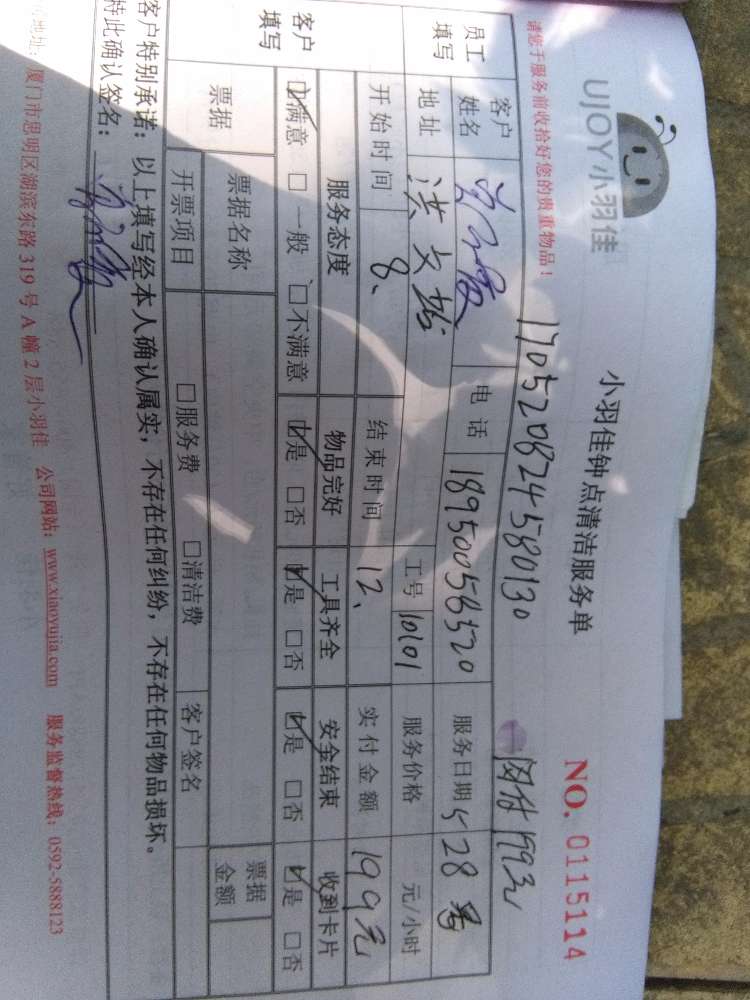 UJOY小羽佳
小羽佳钟点清洁服务单
NO. 0115114
请您于服务前收拾好您的贵重物品！
170520824580130
网付199元
员工填写
客户姓名
电话 18950056520
服务日期 5 28号
地址 洪文
工号 10101
服务价格 元/小时
开始时间 8、
结束时间 12、
实付金额 199元
客户填写
服务态度 物品完好 工具齐全 安全结束 收到卡片
☑满意 □一般 □不满意 ☑是 □否 ☑是 □否 ☑是 □否 ☑是 □否
票据
票据名称
票据金额
开票项目 □服务费 □清洁费 客户签名
客户特别承诺：以上填写经本人确认属实，不存在任何纠纷，不存在任何物品损坏。
特此确认签名：
地址：厦门市思明区湖滨东路319号A幢2层小羽佳 公司网站：www.xiaoyujia.com 服务监督热线：0592-5888123